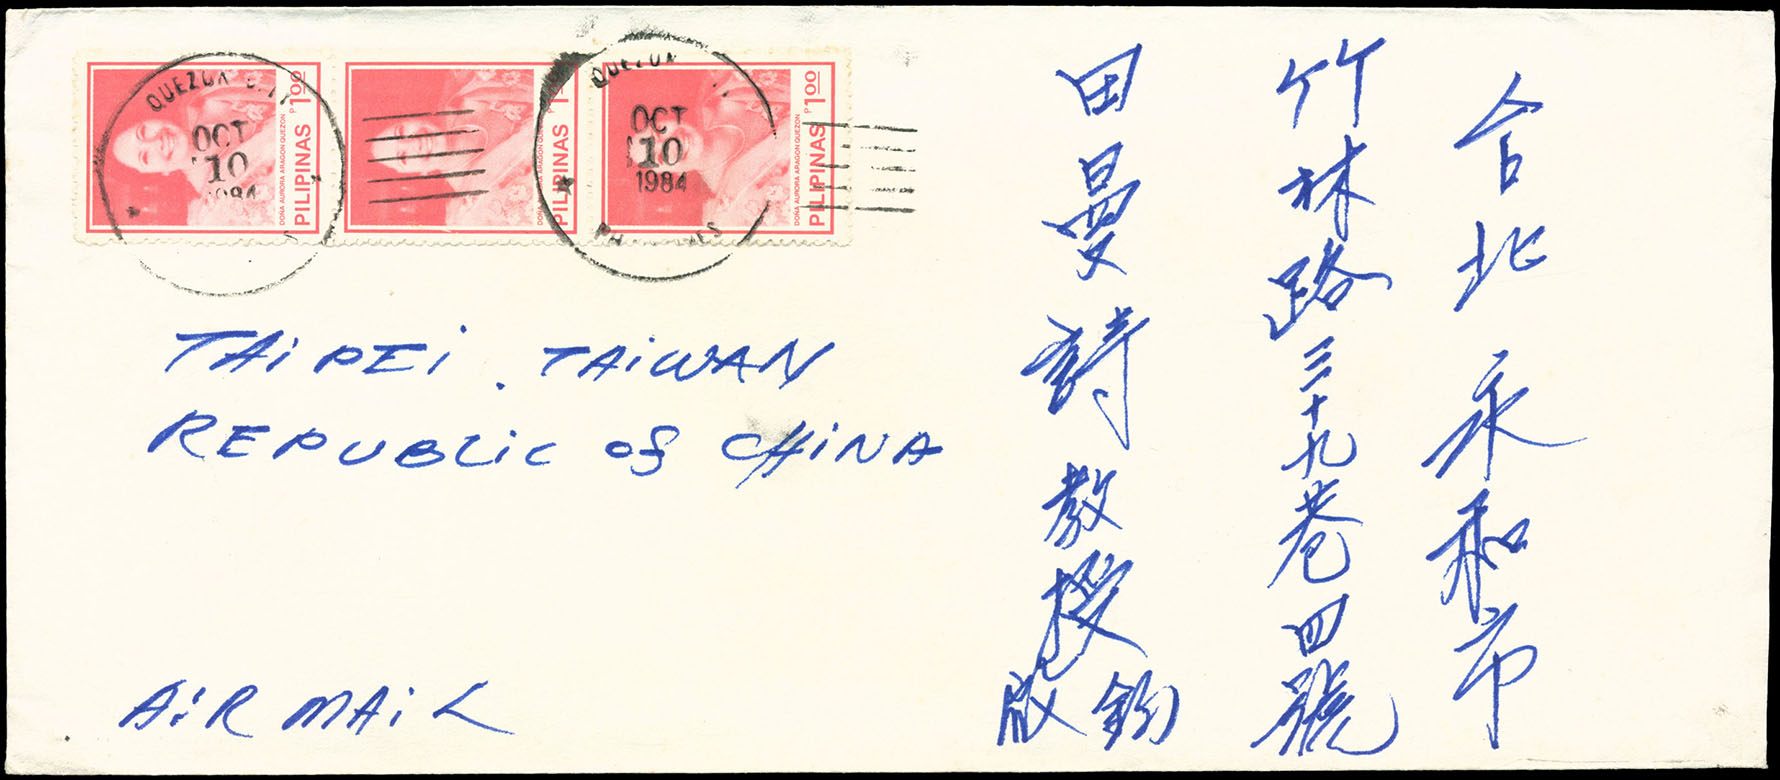 QUEZON
OCT
10
1984
P1.00
PILIPINAS
DOÑA AURORA ARAGON QUEZON
PILIPINAS
DOÑA AURORA ARAGON QUEZON
QUEZON
OCT
10
1984
P1.00
PILIPINAS
DOÑA AURORA ARAGON QUEZON
TAiPEi. TAiWAN
REPUBLiC of CHiNA
AiR MAiL
台北 永和市
竹林路三十九巷四號
田曼詩 教授 鈞啟